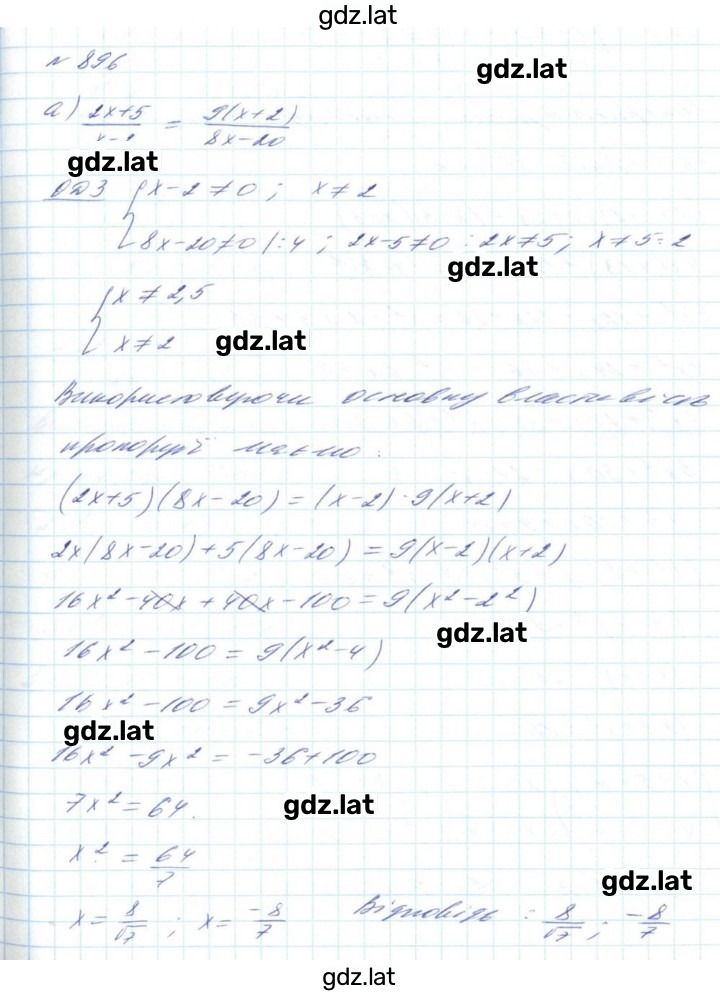 gdz.lat
№ 896
gdz.lat
а) (2x+5)/(x-2) = 9(x+2)/(8x-20)
gdz.lat
ОДЗ { x-2≠0; x≠2
8x-20≠0 |:4; 2x-5≠0 : 2x≠5; x≠5:2
gdz.lat
{ x≠2,5
x≠2
gdz.lat
Використовуючи основну властивість
пропорції маємо:
(2x+5)(8x-20)=(x-2)·9(x+2)
2x(8x-20)+5(8x-20)=9(x-2)(x+2)
16x²-40x+40x-100=9(x²-2²)
gdz.lat
16x²-100=9(x²-4)
16x²-100=9x²-36
gdz.lat
16x²-9x²=-36+100
7x²=64.
gdz.lat
x²=64/7
gdz.lat
x=8/√7; x=-8/7 Відповідь: 8/√7; -8/7
gdz.lat